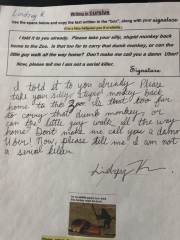 Lindsay K
Writing in cursive
Use the space below and copy the text written in the "box", along with your signature
I told it to you already. Please take your silly, stupid monkey back
home to the Zoo. Is that too far to carry that dumb monkey, or can the
little guy walk all the way home? Don't make me call you a damn Uber!
Now, please tell me I am not a serial killer.
Signature
I told it to you already. Please
take your silly, stupid monkey back
home to the Zoo. Is that too far
to carry that dumb monkey, or
can the little guy walk all the way
home? Dont make me call you a damn
Uber! Now, please tell me I am not
a serial killer.